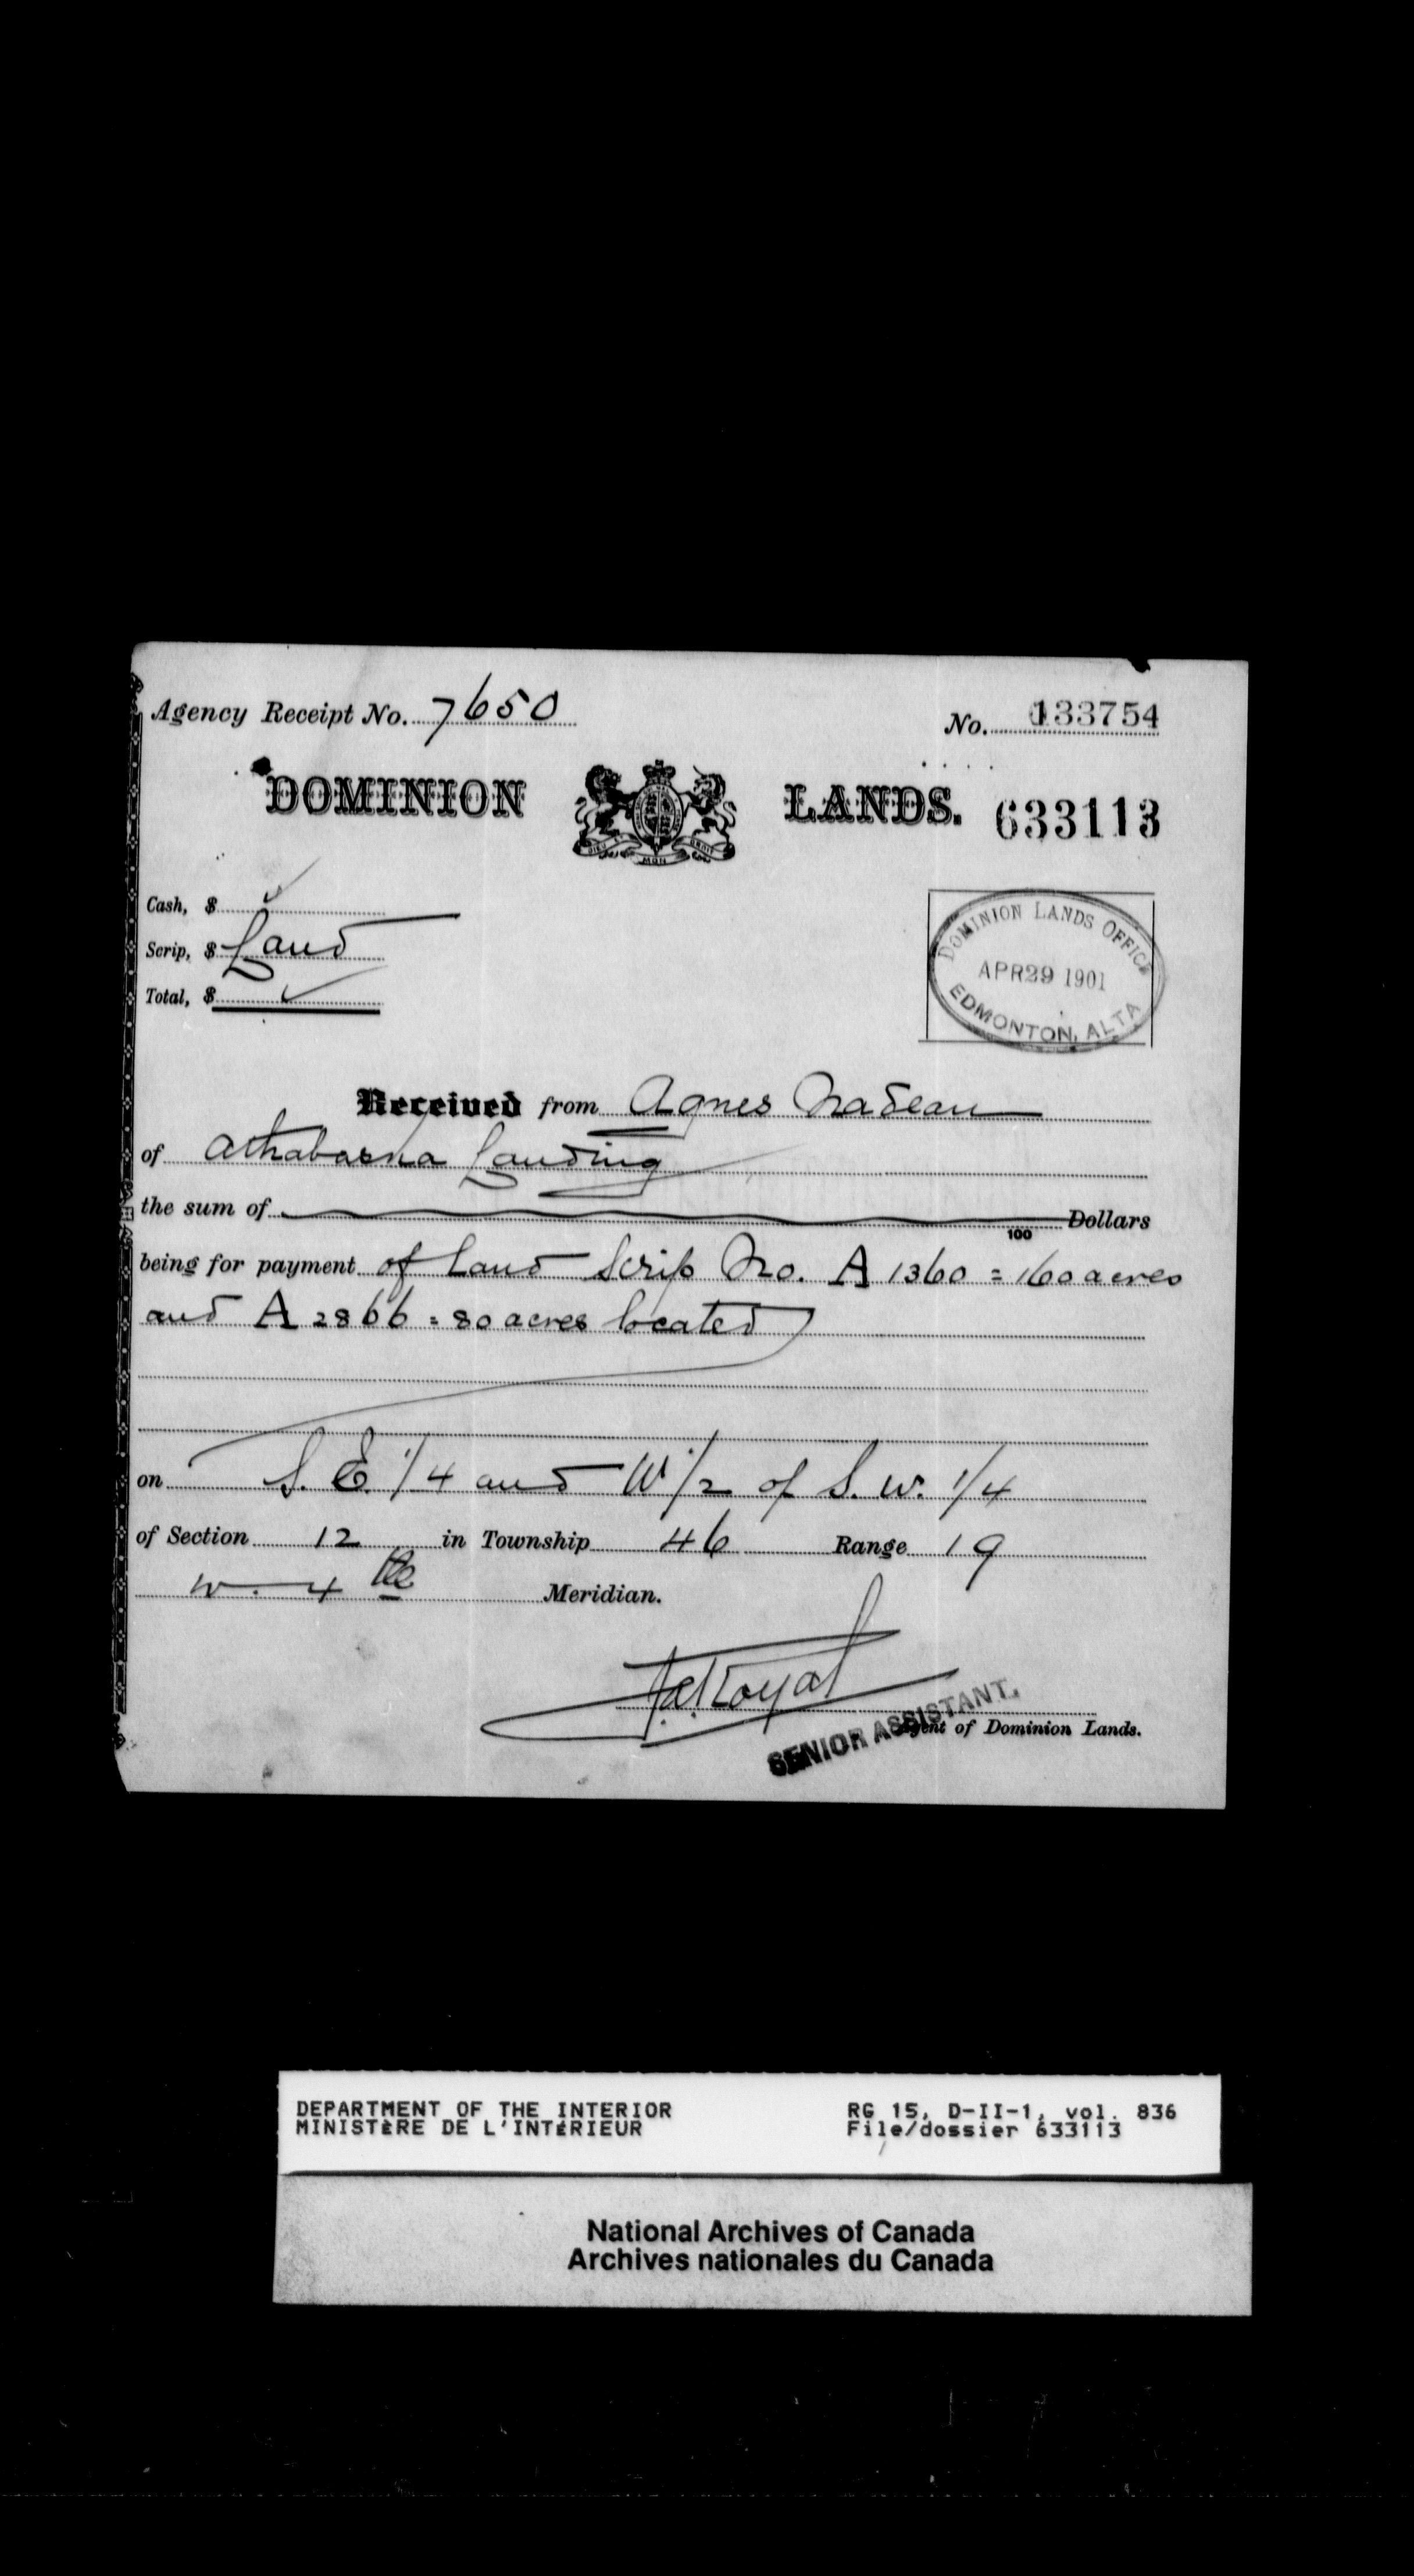 Agency Receipt No. 7650
No. 133754
DOMINION LANDS. 633113
DIEU ET MON DROIT
Cash, $
Scrip, $ Land
Total, $
DOMINION LANDS OFFICE
APR 29 1901
EDMONTON, ALTA
Received from Agnes Nadeau
of Athabaska Landing
the sum of 100 Dollars
being for payment of Land Scrip No. A 1360 = 160 acres
and A 2866 = 80 acres located
on S. E. 1/4 and W 1/2 of S. W. 1/4
of Section 12 in Township 46 Range 19
W. 4th Meridian.
Royal
SENIOR ASSISTANT.
Agent of Dominion Lands.
DEPARTMENT OF THE INTERIOR
MINISTÈRE DE L'INTÉRIEUR
RG 15, D-II-1, vol. 836
File/dossier 633113
National Archives of Canada
Archives nationales du Canada